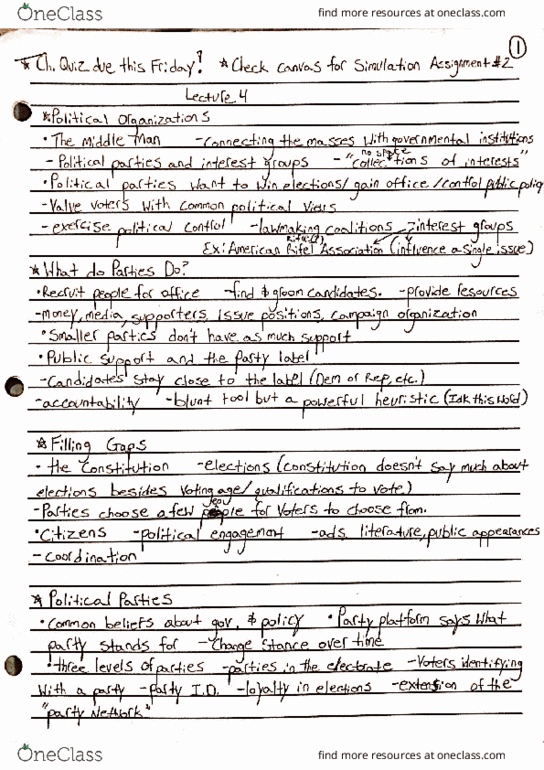 OneClass find more resources at oneclass.com
1
* Ch. Quiz due this Friday! * Check Canvas for Simulation Assignment #2
Lecture 4
* Political Organizations
• The Middle Man - Connecting the masses with governmental institutions
- Political parties and interest groups - "collections of interests"
no space
• Political parties want to win elections/gain office/control public policy
- Value voters with common political views
- exercise political control - lawmaking coalitions → interest groups
Ex: American Rifel Association (influence a single issue)
* What do Parties Do?
• Recruit people for office - find & groom candidates. - provide resources
- money, media, supporters, issue positions, campaign organization
• Smaller parties don't have as much support
• Public support and the Party label
- Candidates stay close to the label (Dem or Rep, etc.)
- accountability - blunt tool but a powerful heuristic (Idk this word)
* Filling Gaps
• the Constitution - elections (constitution doesn't say much about
elections besides voting age/qualifications to vote)
- Parties choose a few for voters to choose from.
• Citizens - political engagement - ads, literature, public appearances
- coordination
* Political Parties
• Common beliefs about gov. & policy • Party platform says what
party stands for - Change stance over time
• three levels of parties - parties in the electorate - Voters identifying
with a party - party I.D. - loyalty in elections - extension of the
"party Network"
OneClass find more resources at oneclass.com